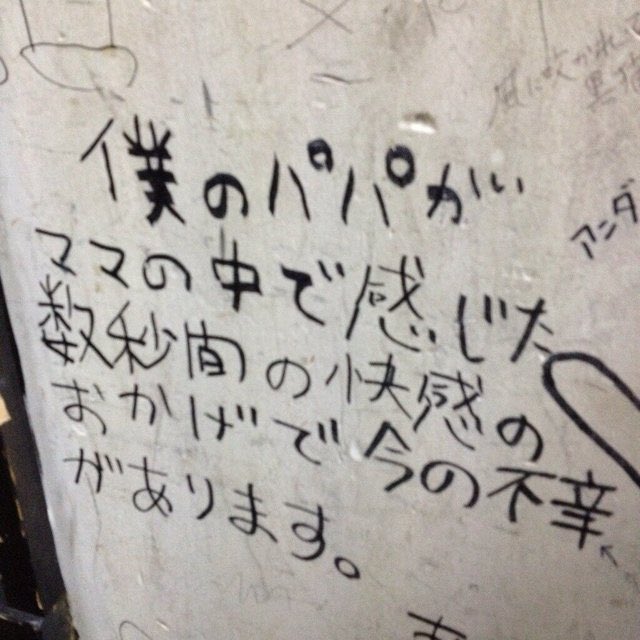 僕のパパがい
ママの中で感じた
数秒間の快感の
おかげで今の不幸
があります。
アンダ